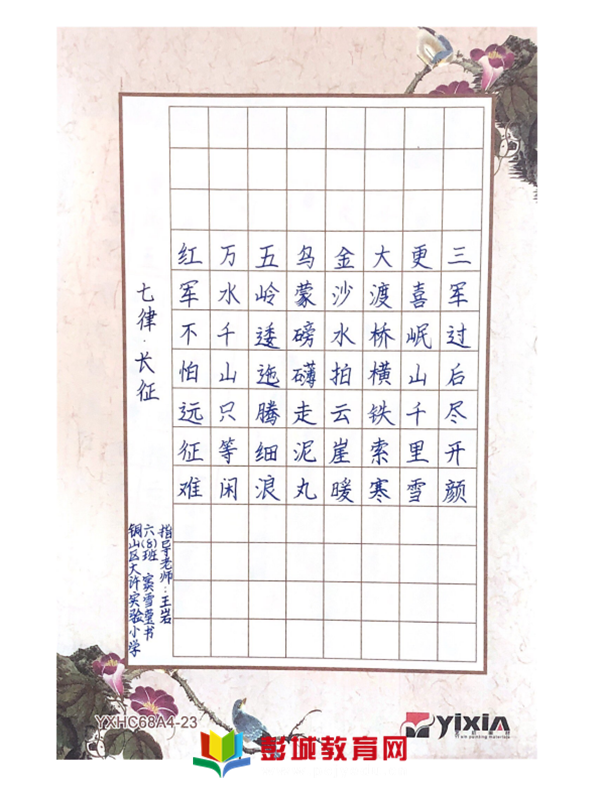 七律·长征
红军不怕远征难
万水千山只等闲
五岭逶迤腾细浪
鸟蒙磅礴走泥丸
金沙水拍云崖暖
大渡桥横铁索寒
更喜岷山千里雪
三军过后尽开颜
铜山区大许实验小学
六(8)班 窦雪莹书
指导老师:王岩
YXHC68A4-23
yixin
彭城教育网